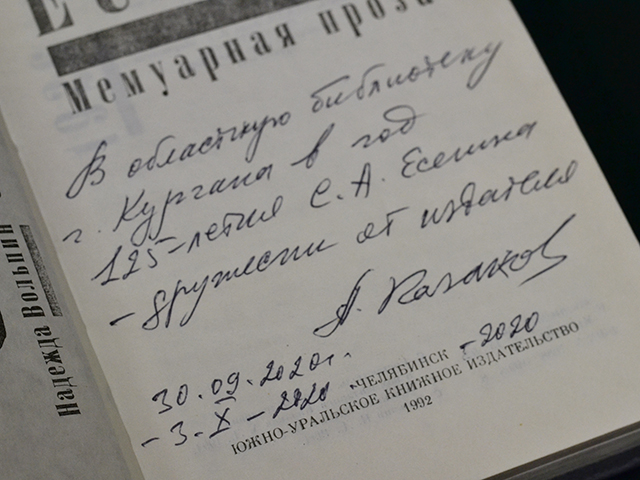 Мемуарная проза
В областную библиотеку
г. Кургана в год
125-летия С. А. Есенина
- дружески от издателя
А. Казаков
30.09.2020г. ЧЕЛЯБИНСК - 2020
- 3. X - 2020
ЮЖНО-УРАЛЬСКОЕ КНИЖНОЕ ИЗДАТЕЛЬСТВО
1992
Надежда Вольпин